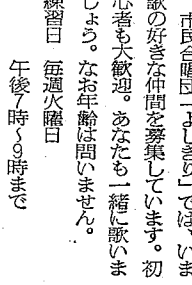 市民合唱団「よしきり」では、いま
歌の好きな仲間を募集しています。初
心者も大歓迎。あなたも一緒に歌いま
しょう。なお年齢は問いません。
練習日　毎週火曜日
午後7時〜9時まで